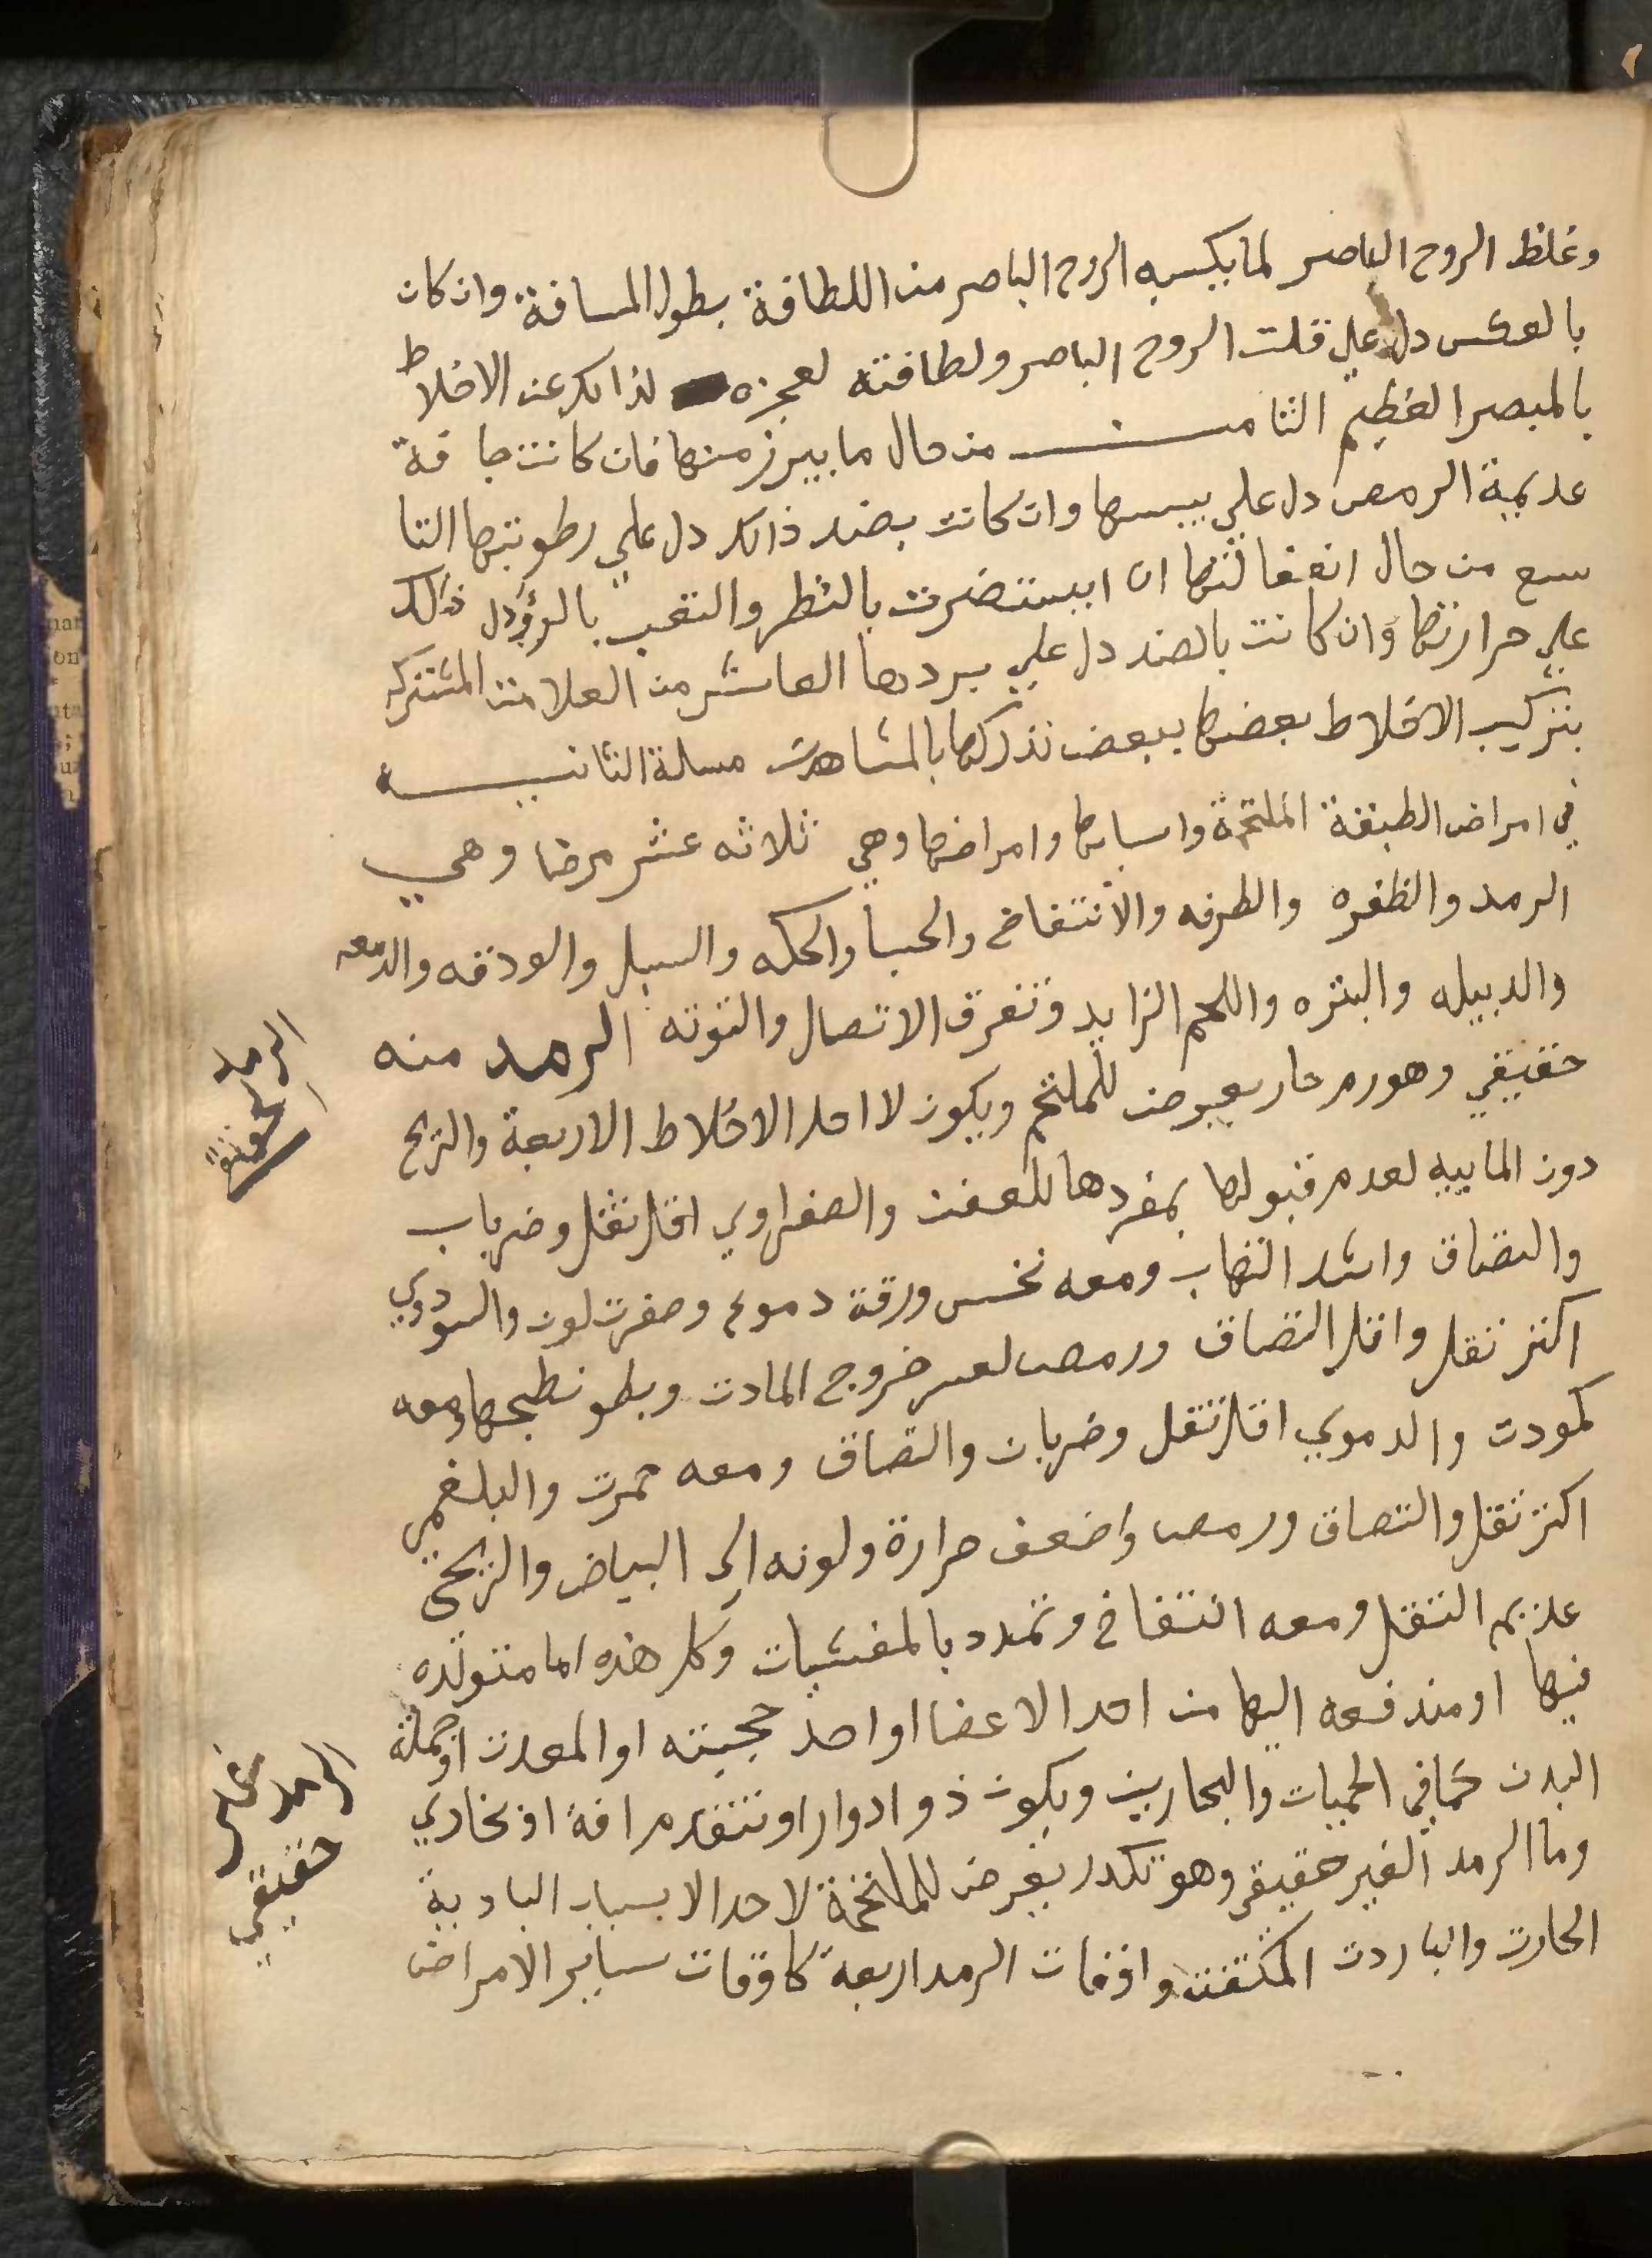 وغلظ الروح الباصر لما يكسبه الروح الباصر من اللطافة بطول المسافة وان كان
بالعكس دل علي قلت الروح الباصر ولطافته لعجزه لذالك عن الاخلاط
بالمبصر العظيم الثامن من حال ما يبرز منها فان كانت جافة
عديمة الرمص دل علي يبسها وان كانت بضد ذالك دل علي رطوبتها التا
سع من حال انفعالتها ان ايستضرت بالنظر والتعب بالرؤ دل ذالك
علي حرارتها وان كانت بالضد دل علي بردها العاشر من العلامت المشتركه
بتركيب الاخلاط بعضها ببعض تدركها بالمشاهدت مسلة الثانيه
في امراض الطبقة الملتحمة واسبابها وامراضها وهي ثلاثه عشر مرضا وهي
الرمد والظفره والطرفه والانتفاخ والحسا والحكه والسبل والودقه والدمعه
والدبيله والبثره واللحم الزايد وتفرق الاتصال والتوته الرمد منه
حقيقي وهو رم حار يعرض للملتحم ويكون لا احد الاخلاط الاربعة والريح
دون المايية لعدم قبولها بمفردها للعفن والصفراوي اقل ثقل وضربات
والتصاق واشد التهاب ومعه نخس ورقة دموع وصفرت لون والسودوي
اكثر ثقل واقل التصاق ورمص لعسر خروج المادت وبطو نطجها ومعه
كمودت والدموي اقل ثقل وضربان والتصاق ومعه حمرت والبلغمي
اكثر ثقل والتصاق ورمص واضعف حرارة ولونه الى البياض والريحي
عديم الثقل ومعه انتفاخ وتمدد بالمغشيات وكل هذه اما متولده
فيها او مندفعه اليها من احد الاعضا او احد حجبته او المعدت او جملة
البدن كما في الحميات والبحارين ويكون ذو ادوار او تتقدم افة او بخاري
وما الرمد الغير حقيقي وهو تكدر يعرض للملتحمة لاحد الاسباب البادية
الحارت والباردت المكثفت واوقات الرمد اربعة كاوقات ساير الامراض
الرمد
الرمد غير
حقيقي